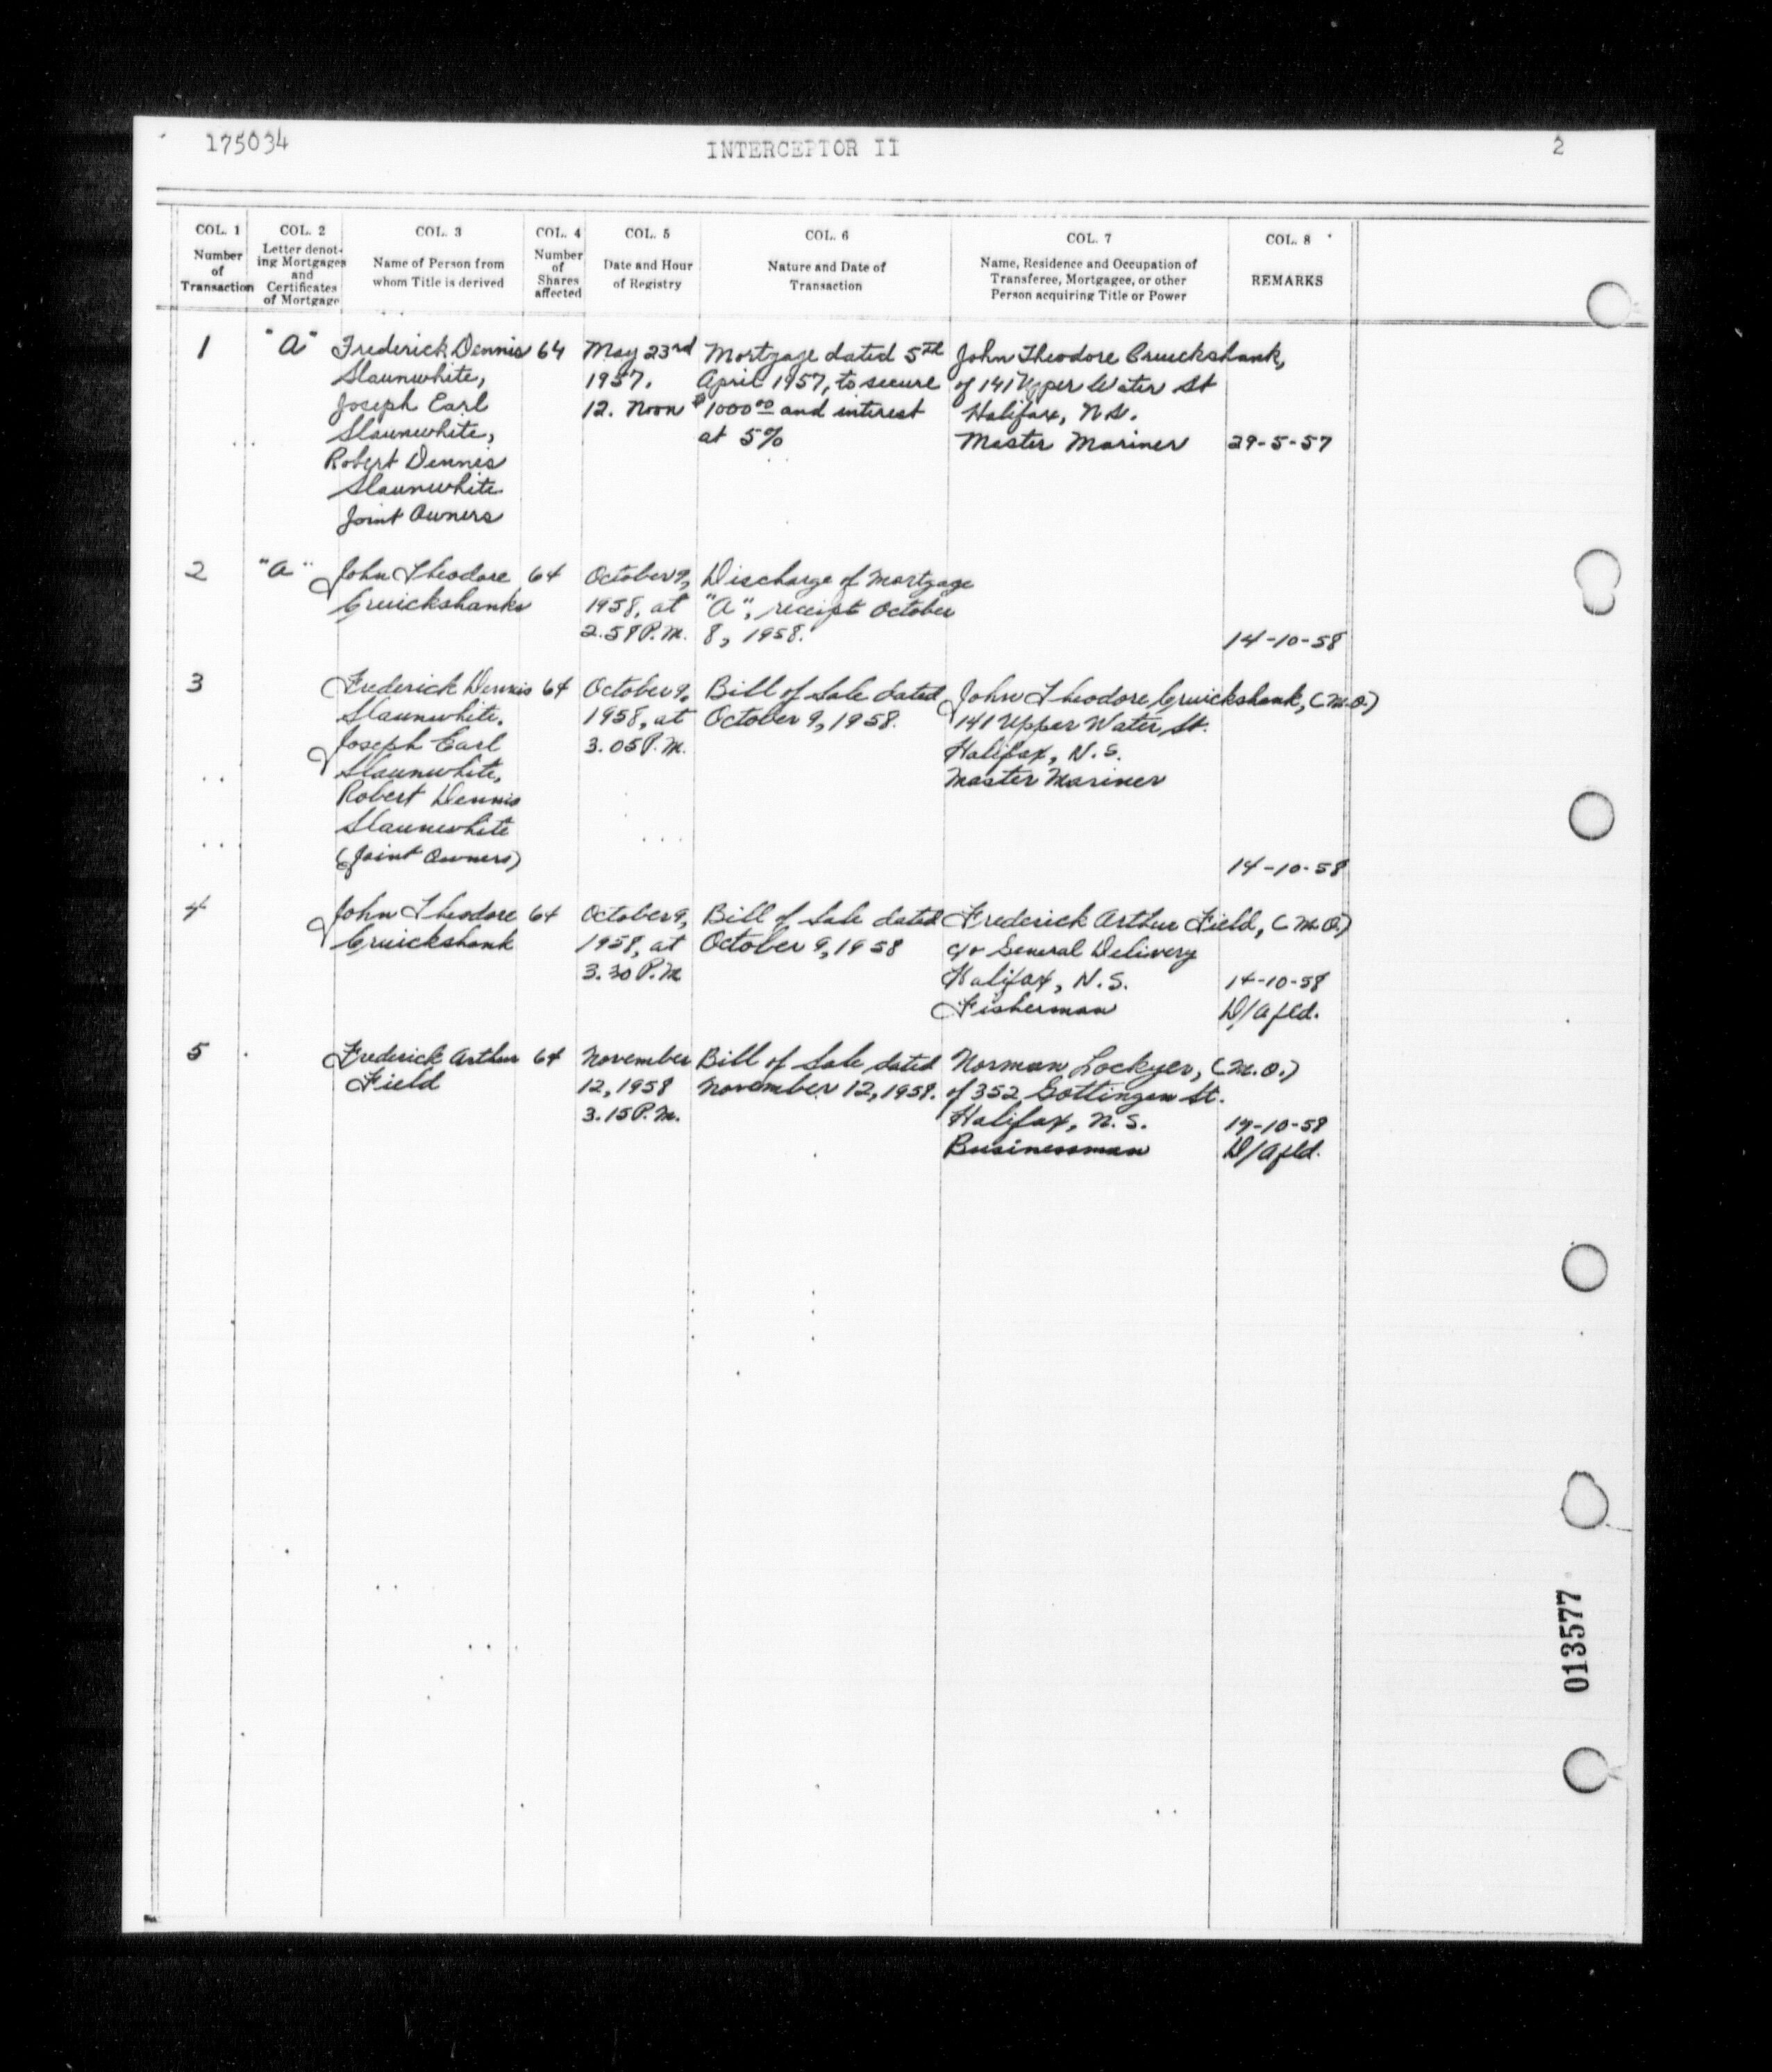 175034
INTERCEPTOR II
2
COL. 1
Number
of
Transaction
COL. 2
Letter denot-
ing Mortgages
and
Certificates
of Mortgage
COL. 3
Name of Person from
whom Title is derived
COL. 4
Number
of
Shares
affected
COL. 5
Date and Hour
of Registry
COL. 6
Nature and Date of
Transaction
COL. 7
Name, Residence and Occupation of
Transferee, Mortgagee, or other
Person acquiring Title or Power
COL. 8
REMARKS
1
"A"
Frederick Dennis
Slaunwhite,
Joseph Earl
Slaunwhite,
Robert Dennis
Slaunwhite
Joint Owners
64
May 23rd
1957.
12. Noon
Mortgage dated 5th
April 1957, to secure
$1000.00 and interest
at 5%
John Theodore Cruickshank,
of 141 Upper Water St
Halifax, N.S.
Master Mariner
29-5-57
2
"A"
John Theodore
Cruickshanks
64
October 9,
1958, at
P.M.
Discharge of Mortgage
"A", receipt October
8, 1958.
14-10-58
3
Frederick Dennis
Slaunwhite,
Joseph Earl
Slaunwhite,
Robert Dennis
Slaunwhite
(Joint Owners)
64
October 9,
1958, at
3.05 P.M.
Bill of Sale dated
October 9, 1958.
John Theodore Cruickshank, (M.O.)
141 Upper Water St.
Halifax, N.S.
Master Mariner
14-10-58
4
John Theodore
Cruickshank
64
October 9,
1958, at
3.30 P.M
Bill of Sale dated
October 9, 1958
Frederick Arthur Field, (M.O.)
c/o General Delivery
Halifax, N.S.
Fisherman
14-10-58
D/A fld.
5
Frederick Arthur
Field
64
November
12, 1958
3.15 P.M.
Bill of Sale dated
November 12, 1958.
Norman Lockyer, (M.O.)
of 352 Gottingen St.
Halifax, N.S.
Businessman
D/A fld.
013577